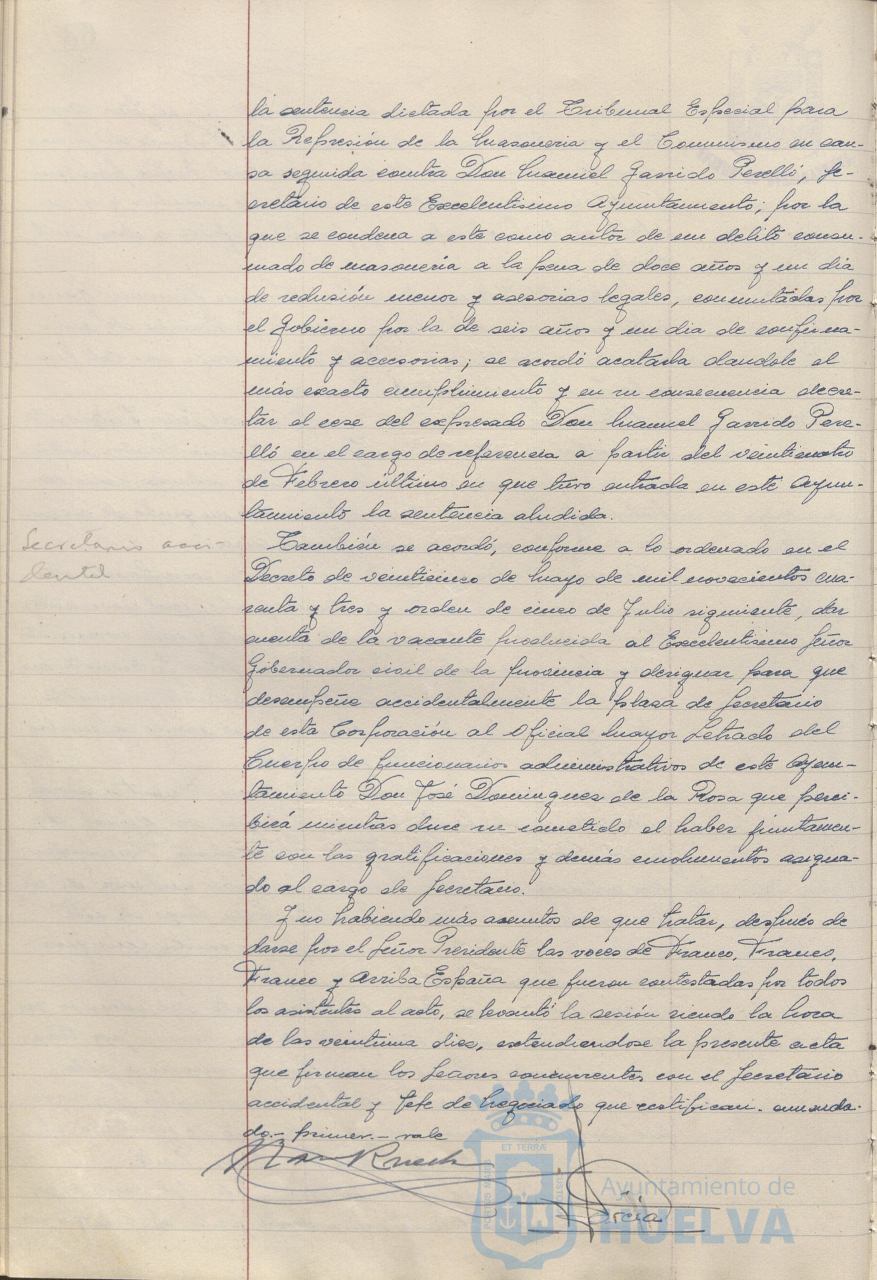 la sentencia dictada por el Tribunal Especial para
la Represión de la Masoneria y el Comunismo en cau-
sa seguida contra Don Manuel Garrido Perelló, Se-
cretario de este Excelentisimo Ayuntamiento; por la
que se condena a este como autor de un delito consu-
mado de masonería a la pena de doce años y un dia
de reclusión menor y asesorias legales, conmutadas por
el Gobierno por la de seis años y un dia de confina-
miento y accesorias; se acordó acatarla dandole el
más exacto cumplimiento y en su consecuencia decre-
tar el cese del expresado Don Manuel Garrido Pere-
lló en el cargo de referencia a partir del veinticuatro
de Febrero último en que tuvo entrada en este Ayun-
tamiento la sentencia aludida.
Secretario acci-
dental
También se acordó, conforme a lo ordenado en el
Decreto de veinticinco de Mayo de mil novecientos cua-
renta y tres y orden de cinco de Julio siguiente, dar
cuenta de la vacante producida al Excelentisimo Señor
Gobernador civil de la provincia y designar para que
desempeñe accidentalmente la plaza de Secretario
de esta Corporación al Oficial Mayor Letrado del
Cuerpo de funcionarios administrativos de este Ayun-
tamiento Don José Dominguez de la Rosa que perci-
birá mientras dure su cometido el haber juntamen-
te con las gratificaciones y demás emolumentos asigna-
do al cargo de Secretario.
Y no habiendo más asuntos de que tratar, después de
darse por el Señor Presidente las voces de Franco, Franco,
Franco y Arriba España que fueron contestadas por todos
los asistentes al acto, se levantó la sesión siendo la hora
de las veintiuna diez, extendiendose la presente acta
que firman los Señores concurrentes con el Secretario
accidental y Jefe de Negociado que certifican. enmenda-
do.- primer.- vale
García
ET TERRA
Ayuntamiento de
HUELVA